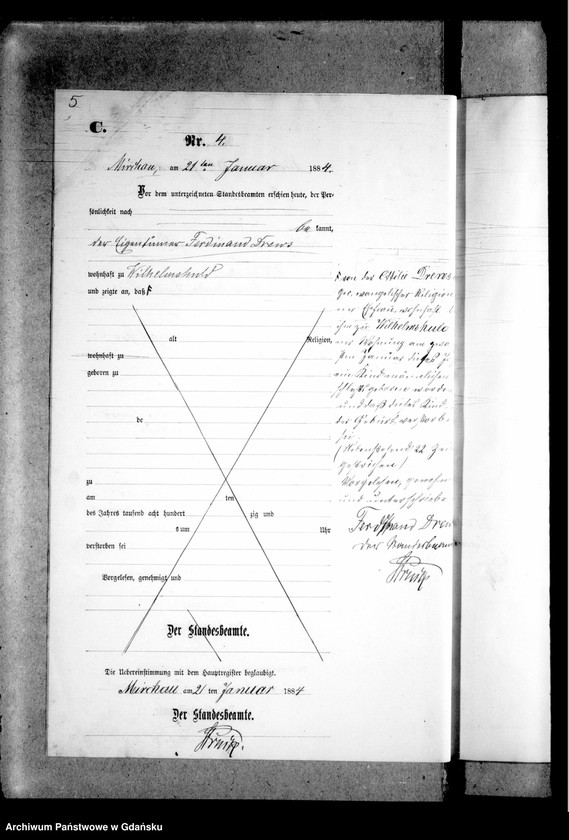 5
C.
Nr. 4.
Mirchau, am 21ten Januar 1884.
Vor dem unterzeichneten Standesbeamten erschien heute, der Per-
sönlichkeit nach
be kannt,
der Eigenthümer Ferdinand Drews
wohnhaft zu Wilhelmshuld
und zeigte an, daß
alt Religion,
wohnhaft zu
geboren zu
de
zu
am ten
des Jahres tausend acht hundert zig und
um Uhr
verstorben sei
Vorgelesen, genehmigt und
Der Standesbeamte.
von der Ottilie Drews
geb. evangelischer Religion
ner Ehefrau, wohnhaft
ihm zu Wilhelmshuld
ner Wohnung am
ten Januar dieses J
ein Kind männlichen
schlechts geboren worden
und daß dieses Kind
der Geburt verstorben
sei.
(Nebenstehend 22 Zei
gestrichen.)
Vorgelesen, geneh
und unterschriebe
Ferdinand Drew
Der Standesbeam
Die Uebereinstimmung mit dem Hauptregister beglaubigt.
Mirchau am 21 ten Januar 1884
Der Standesbeamte.
Archiwum Państwowe w Gdańsku